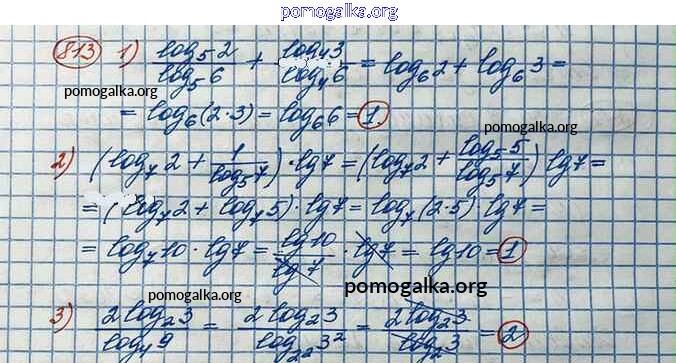 pomogalka.org
813 1) log₅2/log₅6 + log₄3/log₄6 = log₆2 + log₆3 =
pomogalka.org
= log₆(2·3) = log₆6 = 1.
pomogalka.org
2) (log₇2 + 1/log₅7) · lg7 = (log₇2 + log₅5/log₅7) lg7 =
= (log₇2 + log₇5) · lg7 = log₇(2·5) · lg7 =
= log₇10 · lg7 = lg10/lg7 · lg7 = lg10 = 1
pomogalka.org
pomogalka.org
3) 2log₂3/log₄9 = 2log₂3/log₂²3² = 2log₂3/log₂3 = 2